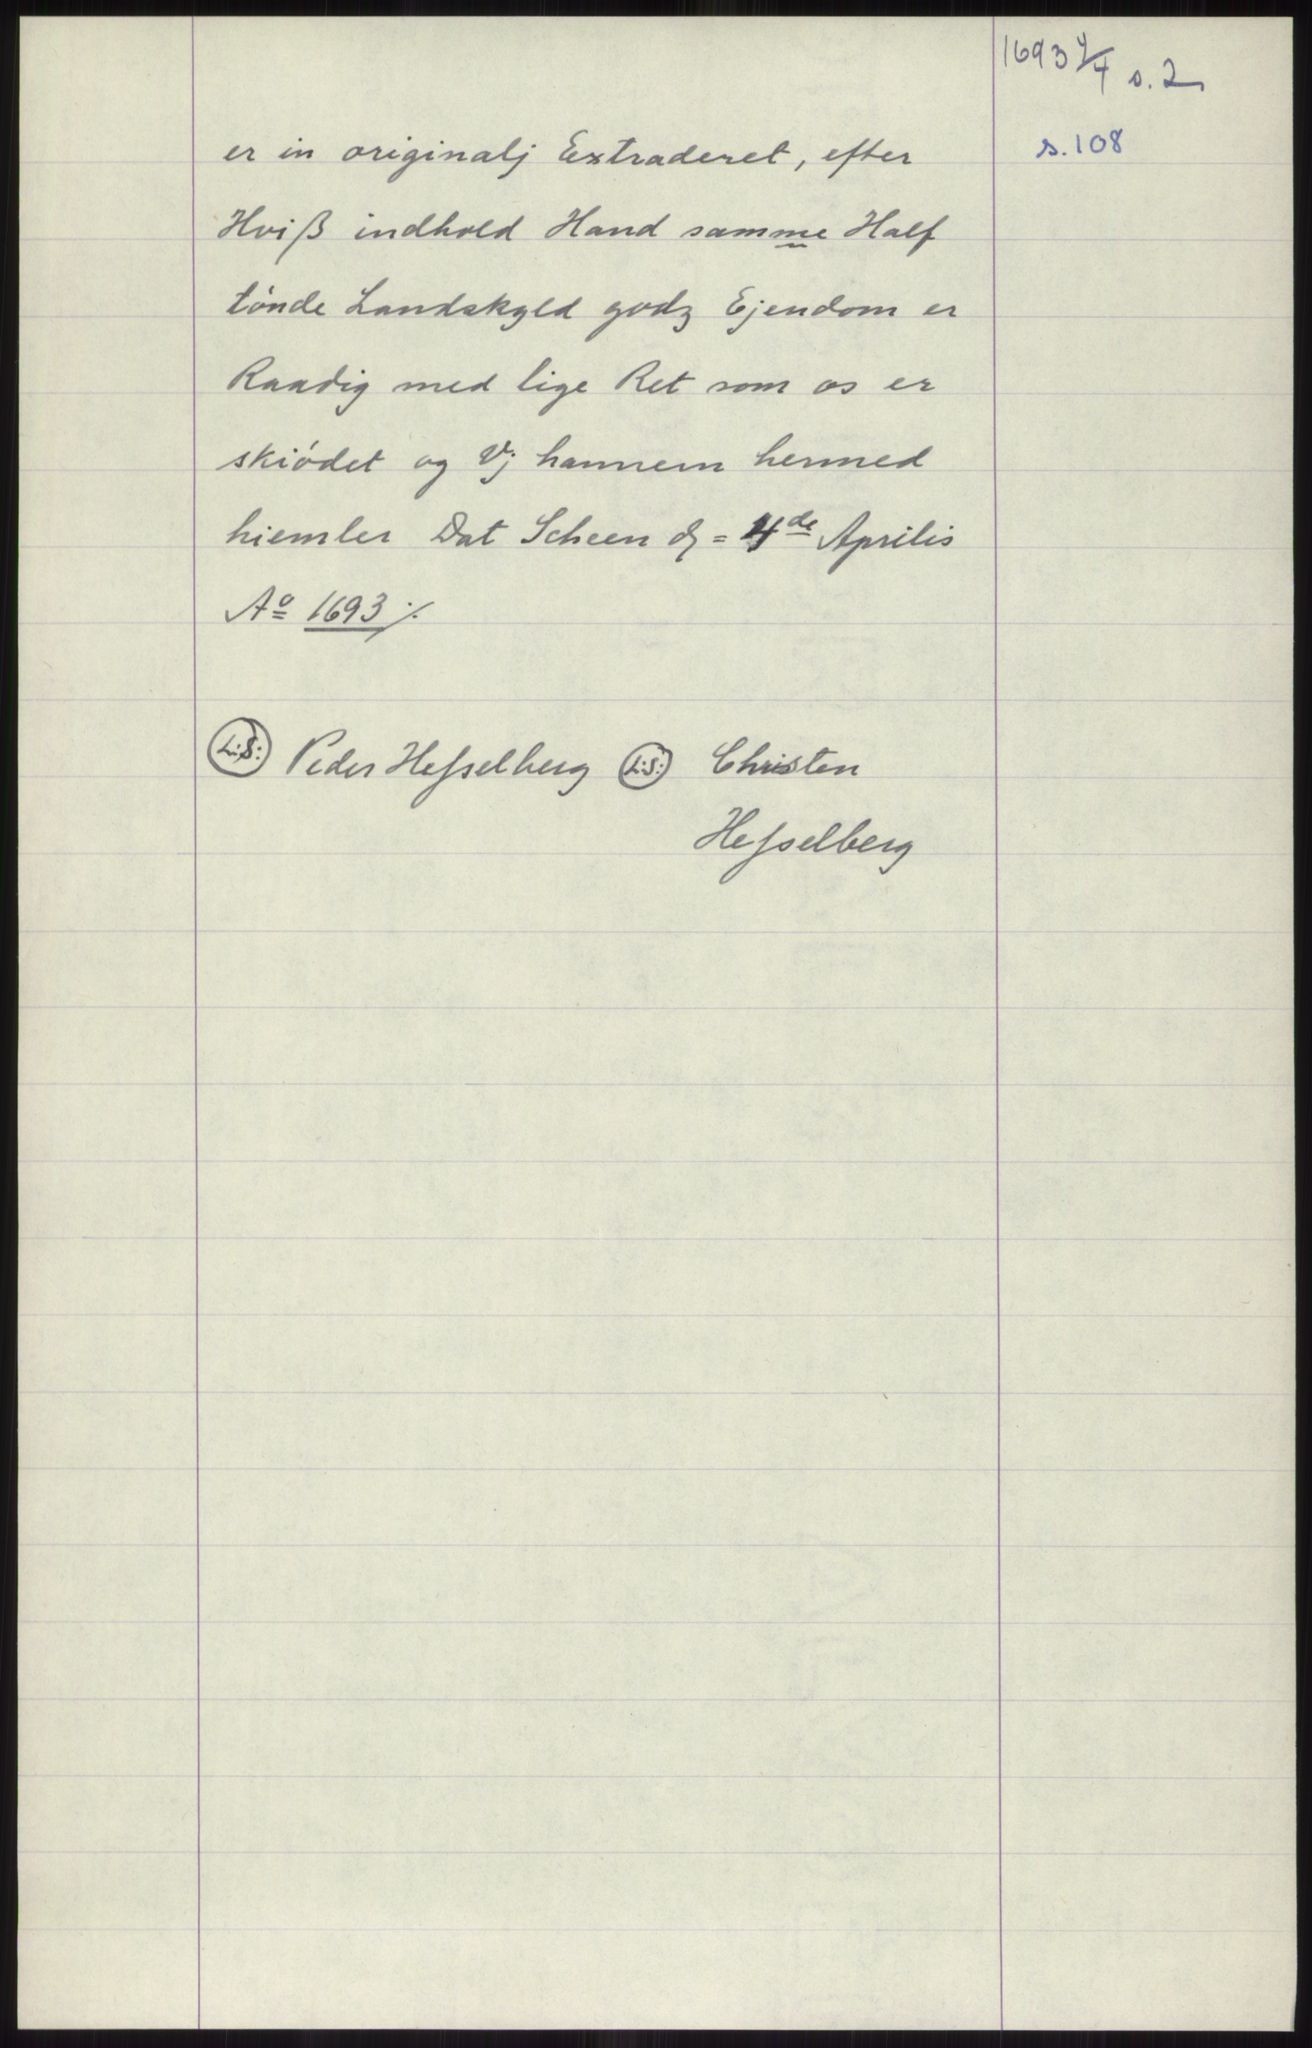 1693 4/4 s. 2
s. 108
er in originalj Extraderet, efter
Hviß indhold Hand samme Half
tónde Landskyld godz Ejendom er
Raadig med lige Ret som os er
skiódet og Vj hannem hermed
hiemler Dat Scheen d = 4de Aprilis
Ao 1693 ./.
L:S: Peder Hesselberg L:S: Christen
Hesselberg